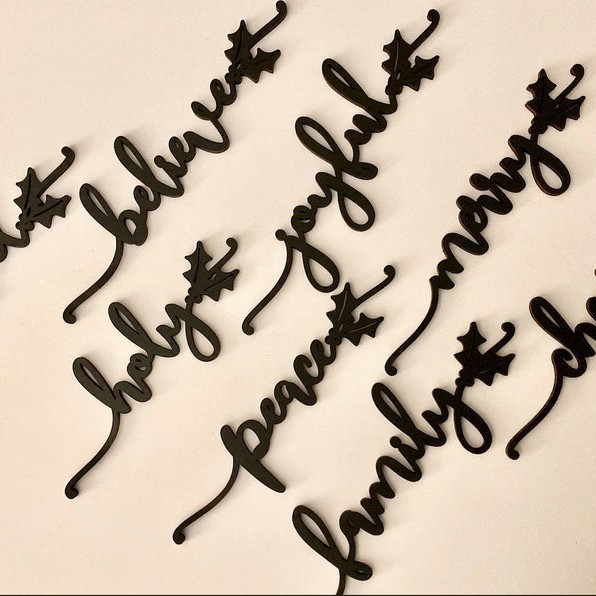 believe
joyful
merry
holy
peace
family